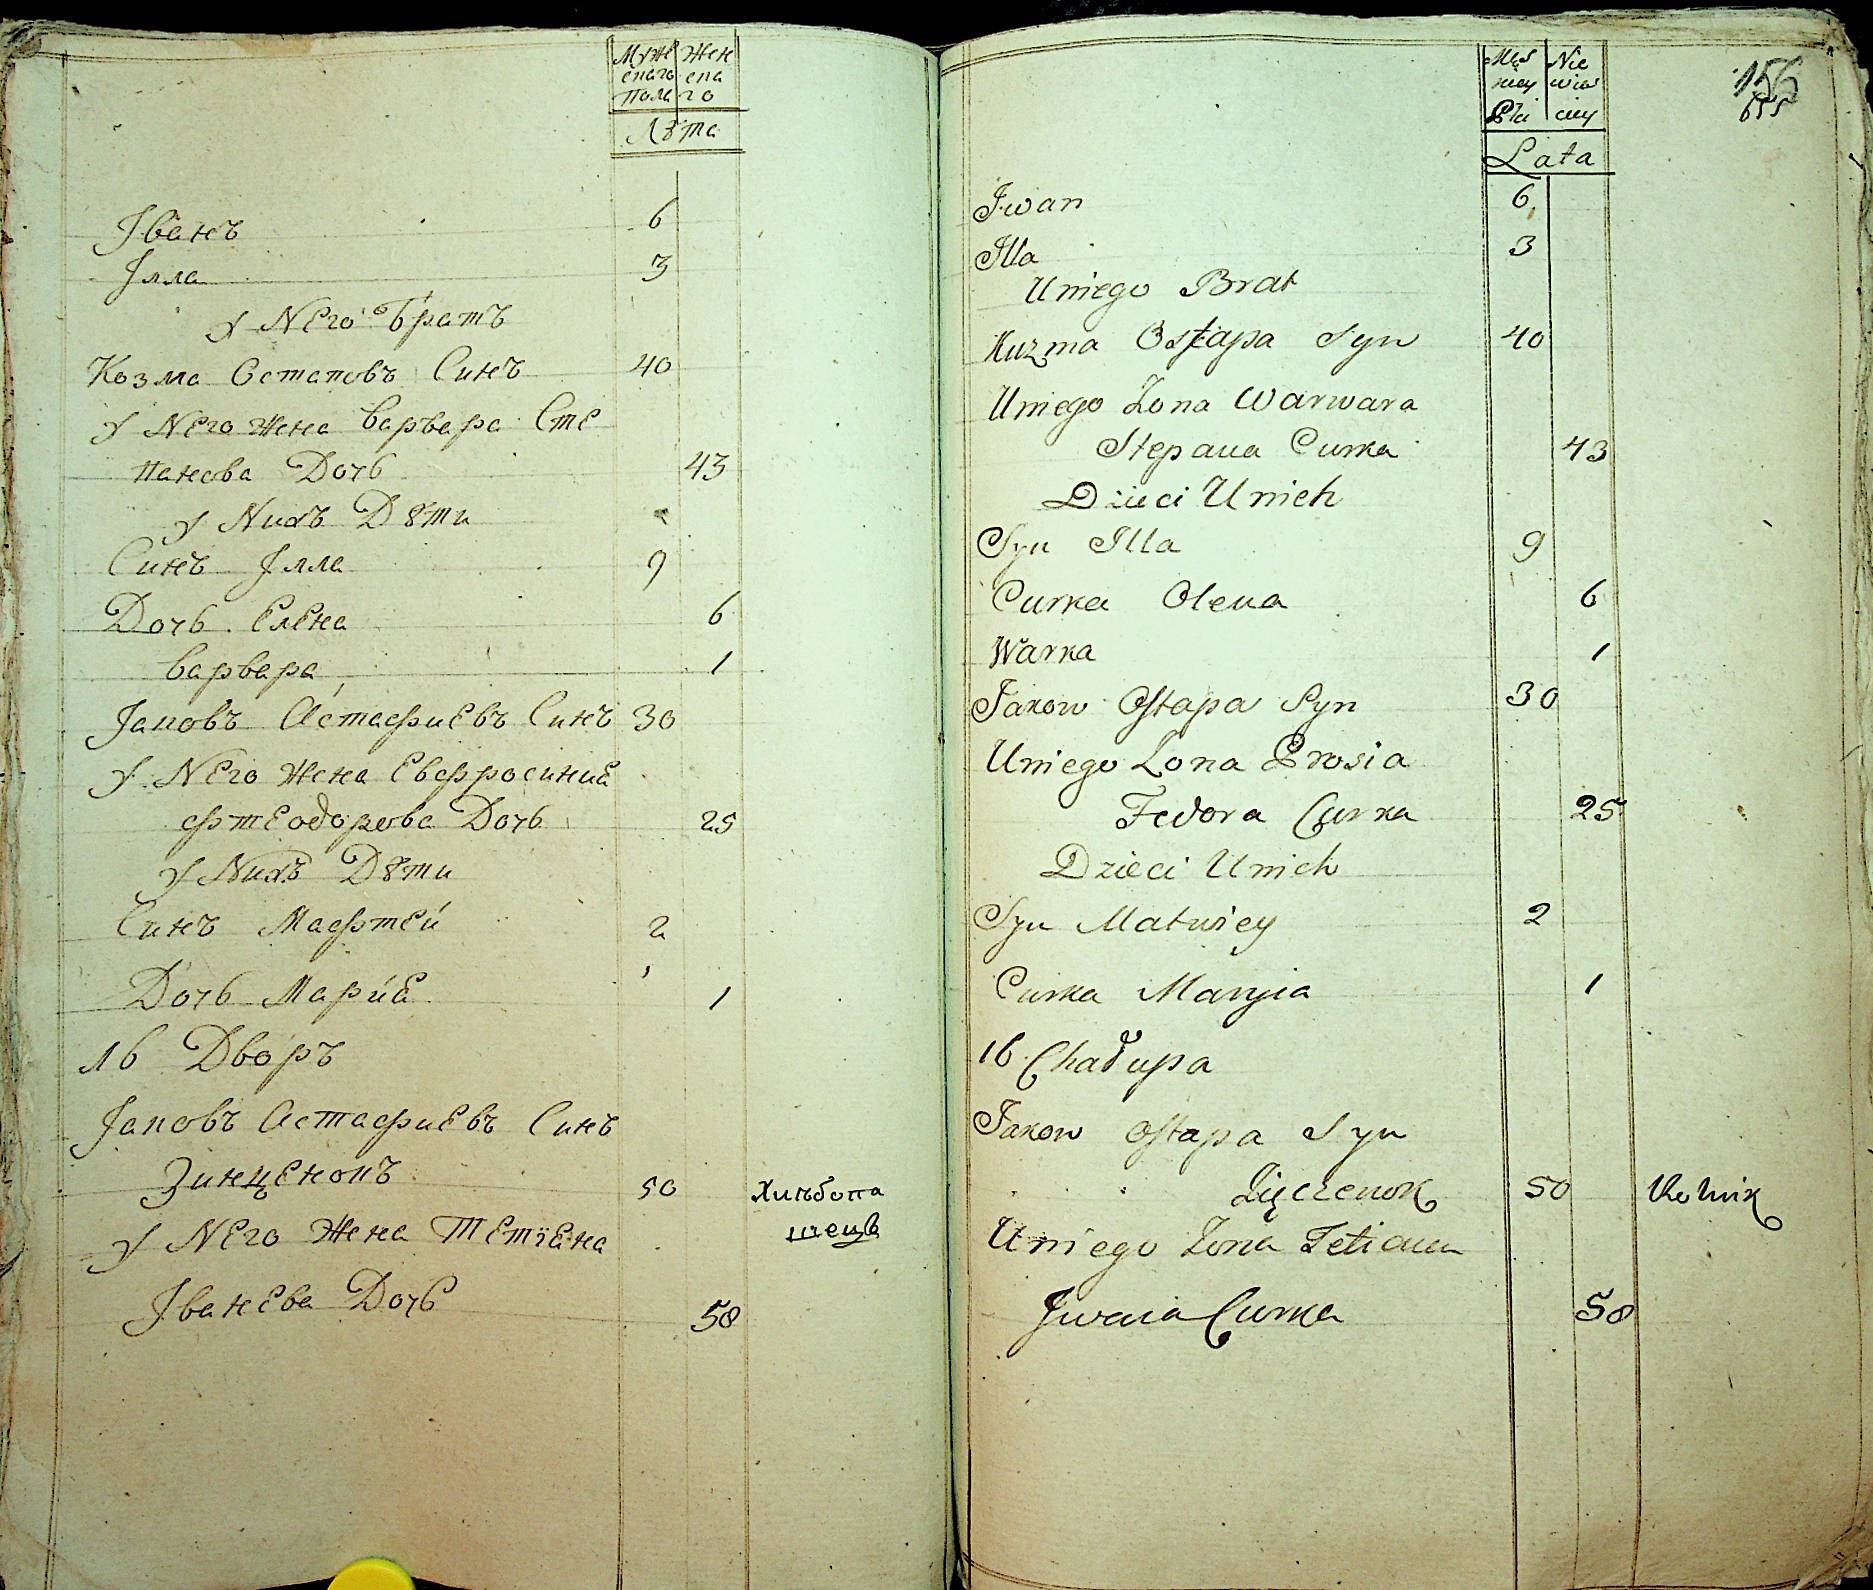 Муже Жен
скаго ска
Пола го
Лѣта
Јванъ 6
Јлла 3
У Него Братъ
Козма Остаповъ Синъ 40
У Него Жена Варвара Сте
панова Дочь 43
У Нихъ Дѣти
Синъ Јлла 9
Дочь Елена 6
Варвара 1
Јаковъ Астафиевъ Синъ 30
У Него Жена Евфросиниа
Фтеодорова Дочь 25
У Нихъ Дѣти
Синъ Мафтей 2
Дочь Мариа 1
16 Дворъ
Јаковъ Астафиевъ Синъ
Зинценокъ 50 Хлѣбопа
шецъ
У Него Жена Тетіана
Јванева Дочь 58
156
655
Męs Nie
kiey wias
Płci ciey
Lata
Jwan 6
Illa 3
Uniego Brat
Kuzma Ostapa Syn 40
Uniego Zona Warwara
Stepana Curka 43
Dzieci Unich
Syn Illa 9
Curka Olena 6
Warka 1
Jakow Ostapa Syn 30
Uniego Zona Prosia
Fedora Curka 25
Dzieci Unich
Syn Matwiey 2
Curka Maryia 1
16 Chałupa
Jakow Ostapa Syn
Zięczenok 50 Rolnik
Uniego Zona Tetiana
Jwana Curka 58